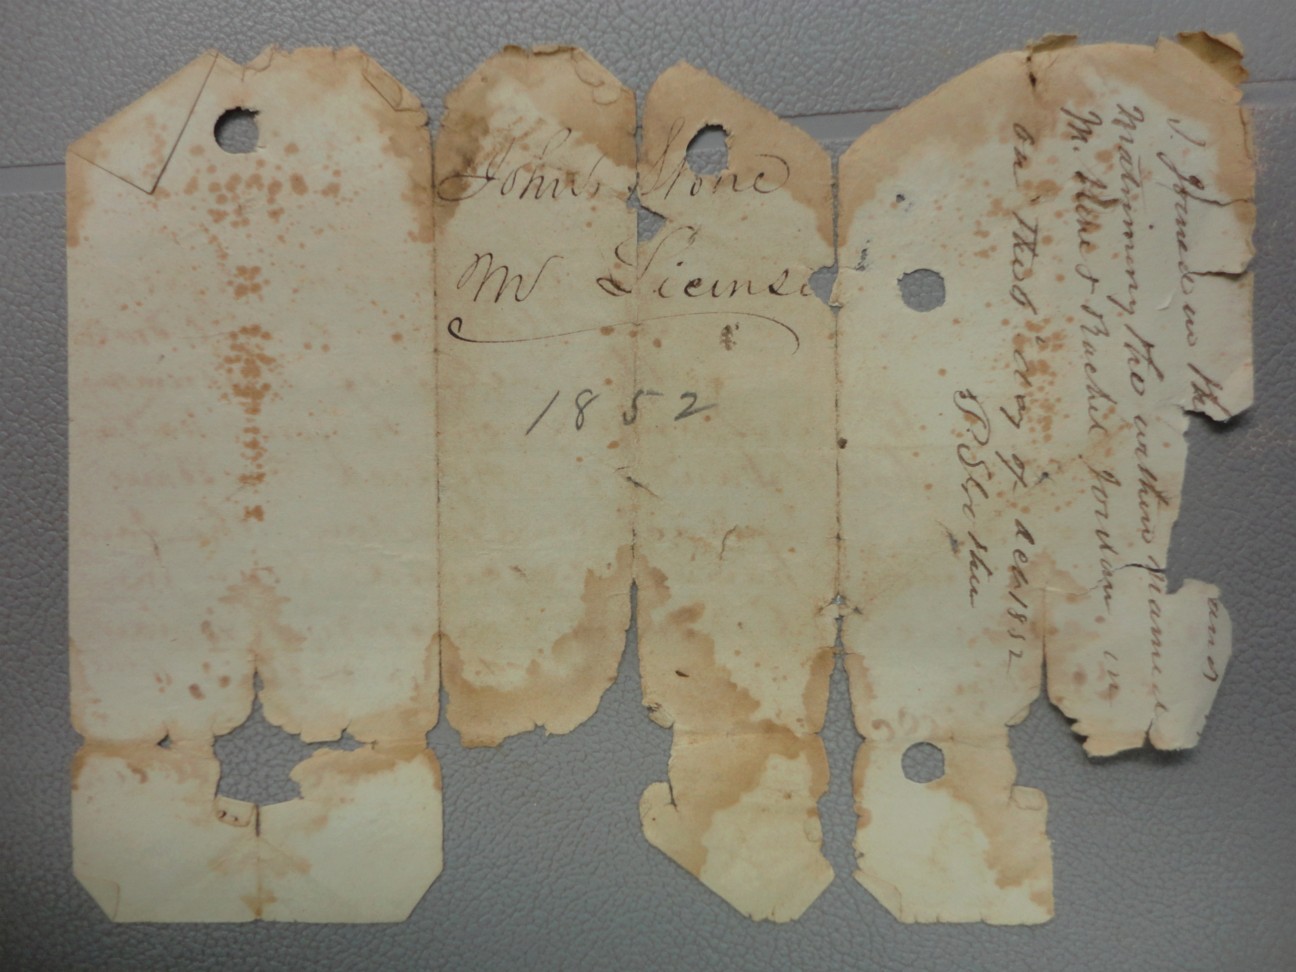 John Stone
M Licinse
1852
I Joined in the
and
Matrimony the within named
M. Stone & Rachel Jordan. in
on This day of dec 1852